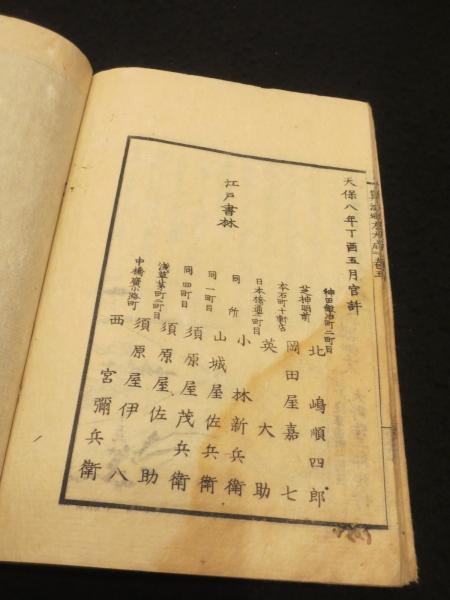 天保八年丁酉五月官許
江戸書林
神田鍛冶町二町目
北嶋順四郎
芝神明前
岡田屋嘉七
本石町十軒店
英大助
日本橋通二町目
小林新兵衛
同所
山城屋佐兵衛
同一町目
須原屋茂兵衛
同四町目
須原屋佐助
浅草茅町二町目
須原屋伊八
中橋廣小路町
西宮彌兵衛